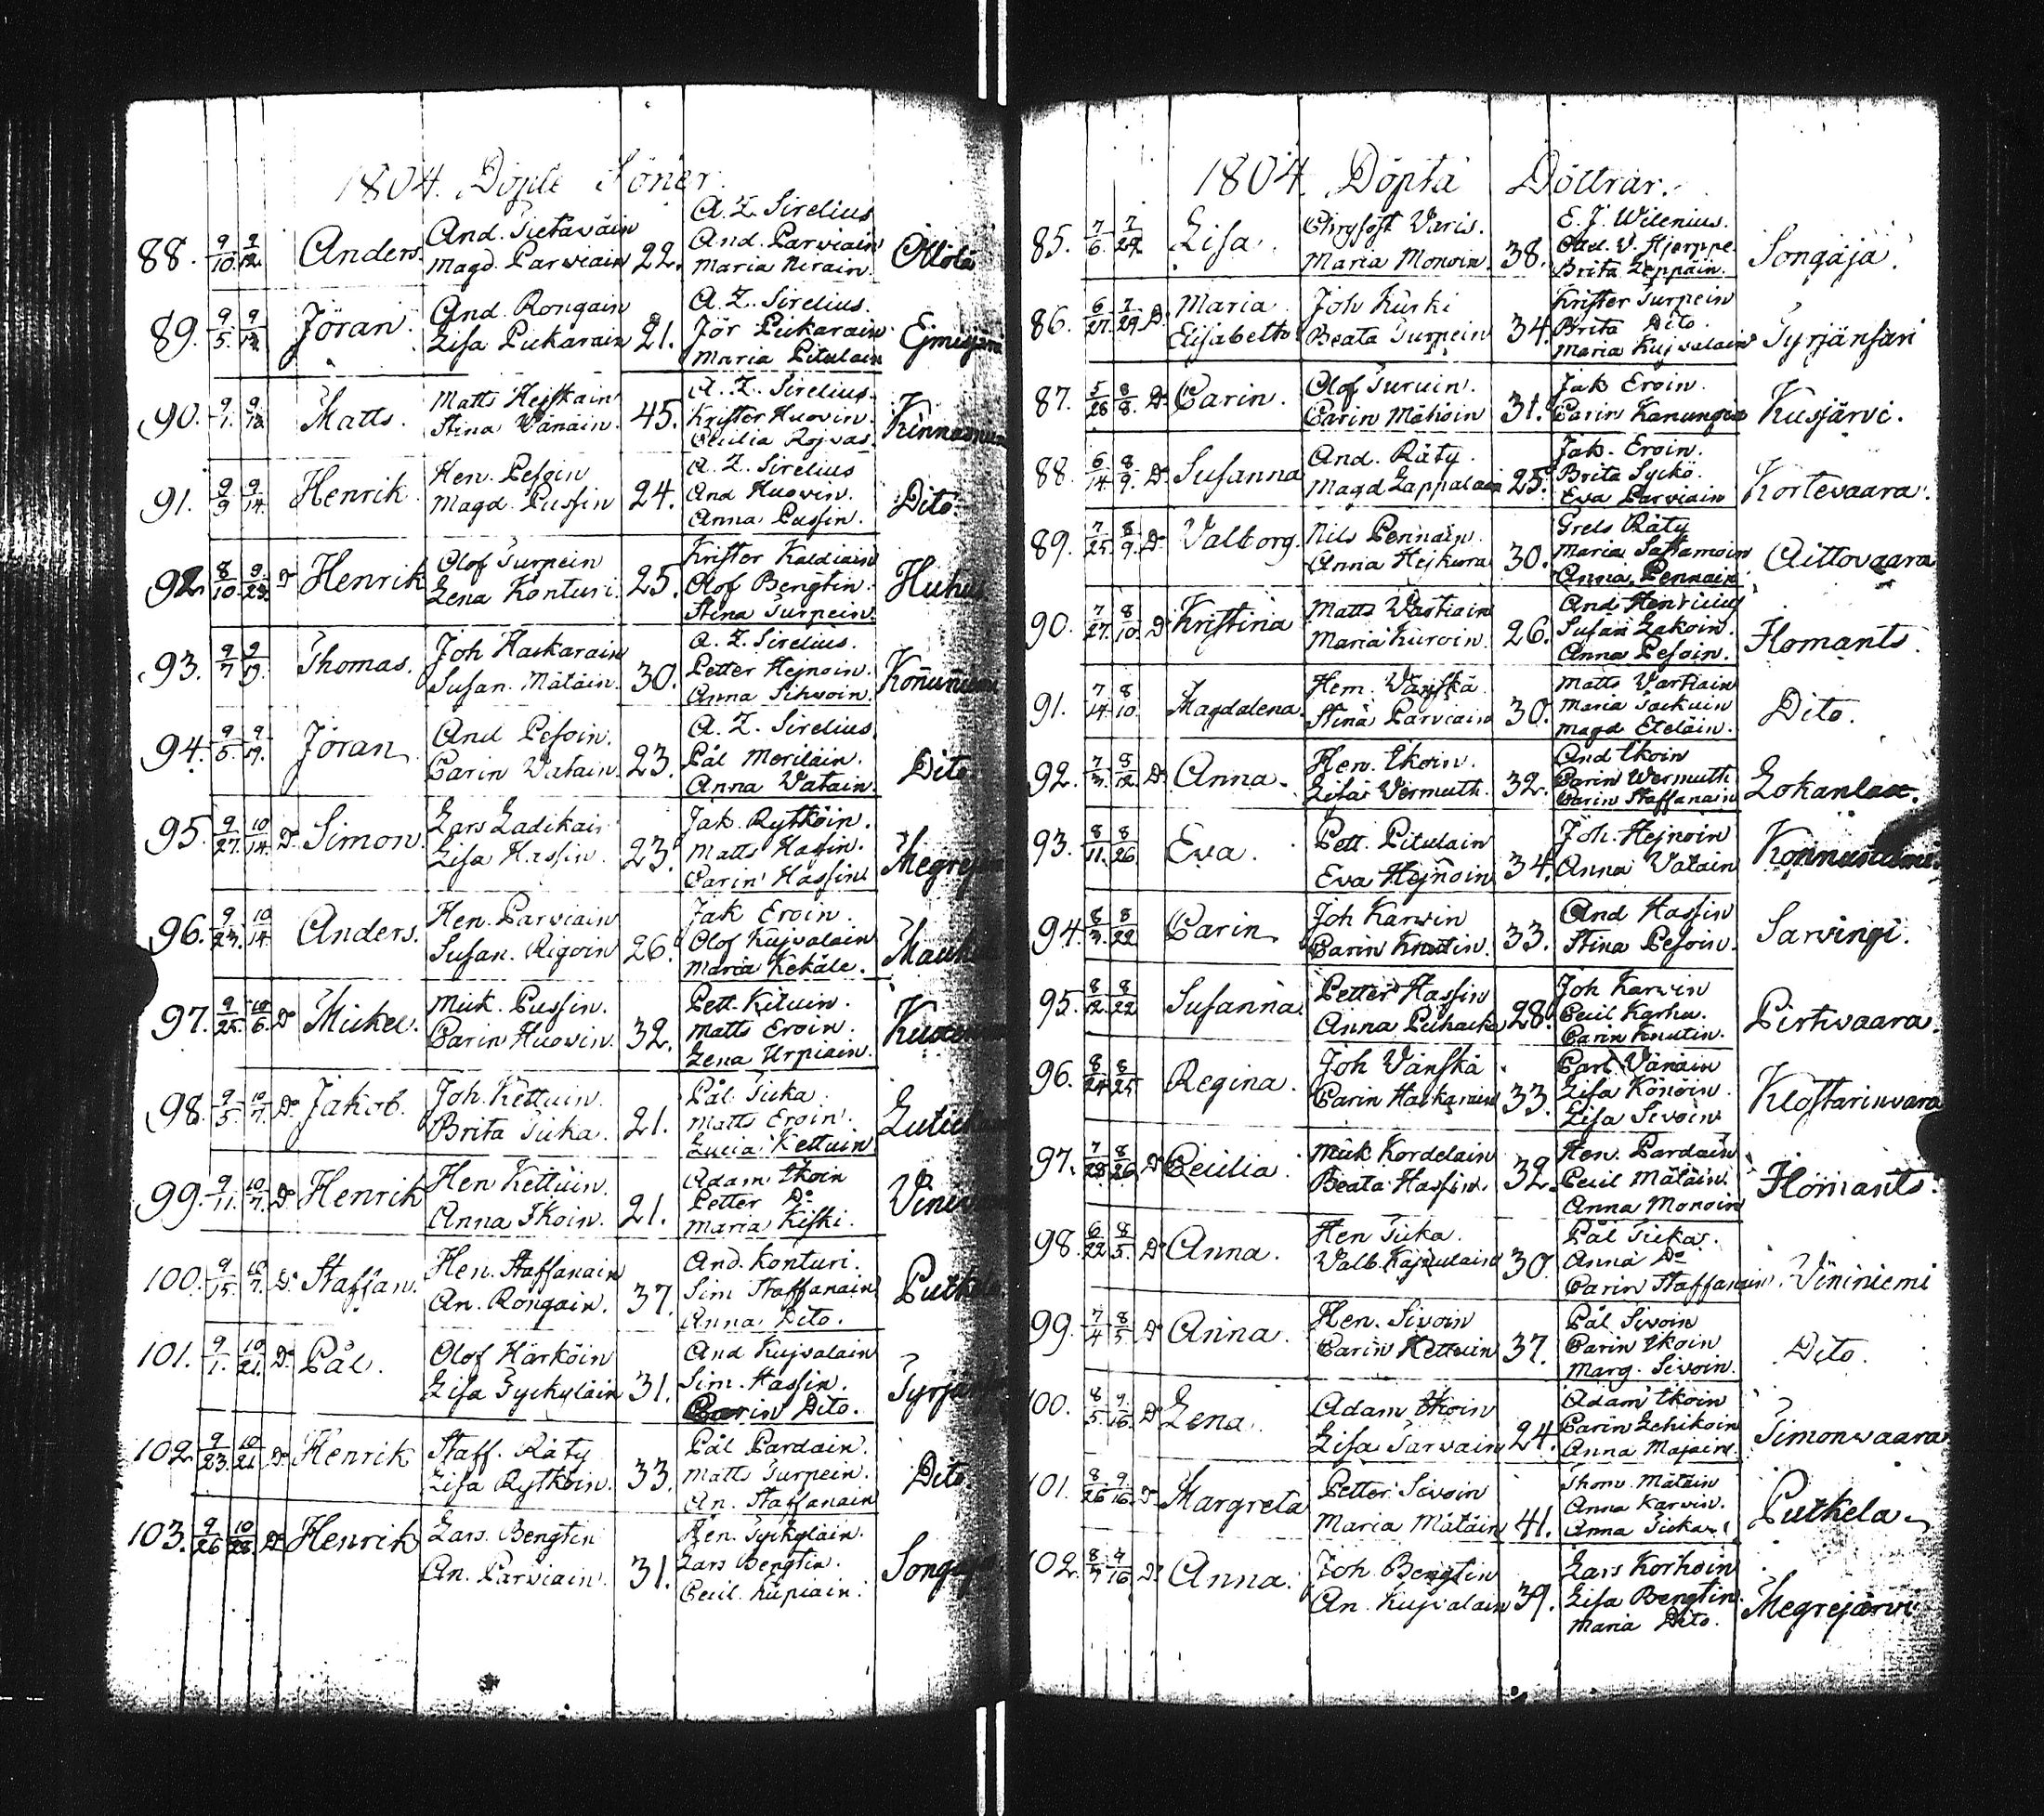 1804. Döpte Söner.
88. 9/10. 9/12. Anders. And. Tietäväin Magd. Parviain 22. A. Z. Sirelius And. Parviain Maria Nirain. Ollola
89. 9/5. 9/12. Jöran. And. Rongain Lisa Pukarain 21. A. Z. Sirelius. Jör Pukarain Maria Pitulain
90. 9/1. 9/13. Matts. Matts Heiskain Stina Vänäin. 45. A. Z. Sirelius. Krister Huovin. Cecilia Rojvas.
91. 9/9 9/14. Henrik Hen. Pesoin Magd. Pussin 24. A. Z. Sirelius And Huovin. Anna Pussin. Dito.
92. 8/10. 9/23. Do Henrik Olof Turpein Lena Konturi. 25. Krister Kaldiain Olof Bengtin. Stina Turpein. Huhus
93. 9/7 9/17. Thomas. Joh Haskarain Susan. Mätäin. 30. A. Z. Sirelius. Petter Hejnoin. Anna Sihvoin.
94. 9/5. 9/17. Jöran And Pesoin. Carin Vatain. 23. A. Z. Sirelius. Pål Moriläin. Anna Vatain. Dito
95. 9/27. 10/14. Do Simon. Lars Ladikain Lisa Hassin. 23. Jak. Rytköin. Matts Hassin. Carin Hassin
96. 9/23. 10/14. Anders. Hen. Parviain Susan. Rigoin 26. Jak Eroin. Olof Kujvalain Maria Kekäle.
97. 9/25. 10/6. Do Mickel. Mick. Pussin. Carin Huovin. 32. Pett. Kituin. Matts Eroin. Lena Urpiain.
98. 9/5. 10/7. Do Jakob. Joh. Kettuin. Brita Tuka. 21. Pål Tuka. Matts Eroin. Lucia Kettuin
99. 9/11. 10/7. Do Henrik Hen Kettuin. Anna Ikoin. 21. Adam Ikoin Petter Do Maria Kiski.
100. 9/15. 10/7. Do Staffan. Hen. Staffanain An. Rongain. 37. And. Konturi. Sim Staffanain Anna Dito. Putkela
101. 9/1. 10/21. Do Pål. Olof Härköin Lisa Tyckyläin 31. And Kujvalain Sim. Hassin. Carin Dito.
102. 9/23. 10/21. Do Henrik Staff. Räty Lisa Rytköin. 33. Pål Pardain. Matts Turpein. An. Staffanain Dito.
103. 9/26 10/28. Do Henrik Lars. Bengtin An. Parviain. 31. Hen. Tyckyläin. Lars Bengtin. Cecil. Kupiain.
1804. Döpta Döttrar.
85. 7/6. 7/29. Lisa. Chrysost Varis. Maria Monoin. 38. E. J. Wilenius. And. V. Hjerppe Brita Leppäin. Songaja.
86. 6/27. 7/29. Do Maria Elisabetha Joh Kurki Beata Turpein 34. Krister Turpein Brita Dito. Maria Kujvalain Tyrjänsari
87. 5/28 8/8. Do Carin. Olof Turuin. Carin Mähöin 31. Jak Eroin. Carin Kanungia Kusjärvi.
88. 6/14 8/9. Do Susanna And. Räty. Magd Lappalain 25. Jak. Eroin. Brita Syckö. Eva Parviain Kortevaara.
89. 7/25. 8/9. Do Valborg. Nils Pennain. Anna Hejkura 30. Grels Räty Maria Sattamoin Anna Pennain Aittovaara
90. 7/27. 8/10. Do Kristina Matts Vartiain Maria Kuroin. 26. And Henricius Susan Lakoin. Anna Pesoin. Ilomants.
91. 7/14. 8/10. Magdalena. Hem. Vänskä Stina Parviain 30. Matts Vartiain Maria Tackuin Magd Eteläin. Dito.
92. 7/3. 8/12. Do Anna. Hen. Ikoin. Lisa Vermuth. 32. And Ikoin Carin Wermuth Carin Staffanain Lokanlax.
93. 8/11. 8/26. Eva. Pett. Pitulain Eva Hejnoin 34. Joh. Hejnoin Anna Vatain
94. 8/3. 8/22 Carin Joh Karvin Carin Knutin. 33. And Hassin Stina Pesoin. Sarvingi.
95. 8/12 8/22 Susanna Petter Hassin Anna Puhacka 28. Joh Karvin Cecil Karhu. Carin Knutin. Pirhvaara.
96. 8/24 8/25 Regina. Joh Vänskä Carin Haskarain 33. Carl Vänäin Lisa Könöin. Lisa Sivoin Klostarinvara
97. 7/28 8/26. Do Cecilia. Mick Kordelain Beata Hassin. 32. Hen. Pardain Cecil Mätäin. Anna Monoin Ilomants.
98. 6/22 8/5. Do Anna. Hen Tuka. Valb. Kajzulain 30. Pål Tuka. Anna Do Carin Staffanain. Vininiemi
99. 7/4 8/5. Do Anna. Hen. Sivoin Carin Kettuin 37. Pål Sivoin Carin Ikoin Marg. Sivoin. Dito.
100. 8/5. 9/16. Do Lena. Adam Ikoin Lisa Tarvain 24. Adam Ikoin Carin Lehikoin Anna Majain. Timonvaara
101. 8/26 9/16. Do Margreta Petter Sivoin Maria Mätäin 41. Thom. Mätäin Anna Karvin. Anna Tuka. Putkela
102. 8/7 9/16. Do Anna. Joh Bengtin An. Kujvalain 39. Lars Korhoin Lisa Bengtin. Maria Dito. Megrejärvi